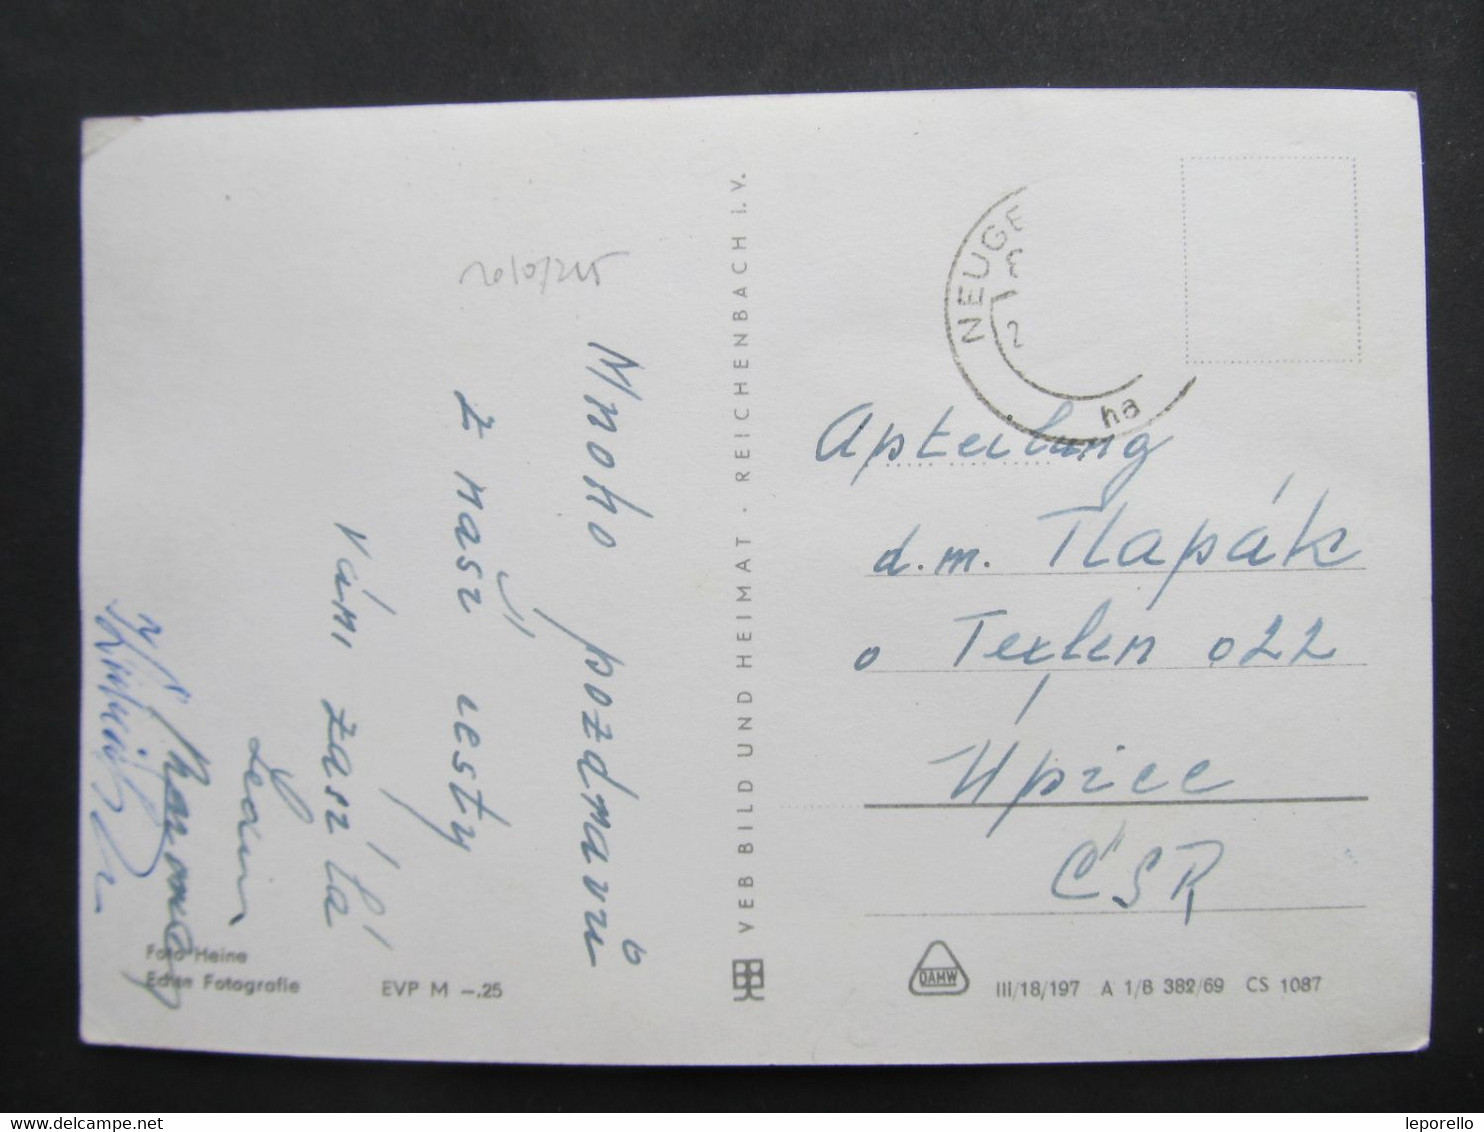 Mnoho pozdravů
z naší cesty
Vám zasílá
VEB BILD UND HEIMAT · REICHENBACH i. V.
NEUGE
2
ha
Apteilung
d.m. Tlapák
o Texlen 022
Úpice
ČSR
Foto Heine
Echte Fotografie
EVP M –.25
DAMW
III/18/197 A 1/B 382/69 CS 1087
leporello